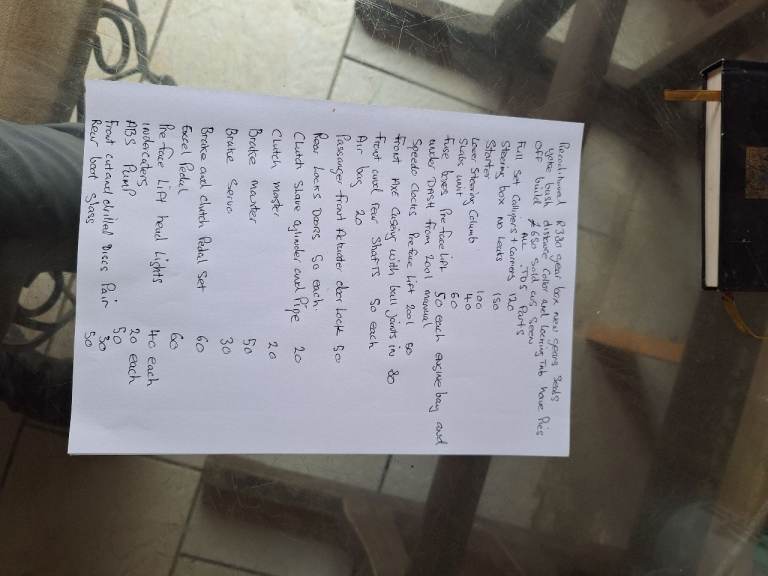 Recontioned R380 gear box new gears seals
yoke bush distance coller and locking Tab have pics
off build £650 sold as seen
ALL TD5 Parts
Full set Callipers + carriers 120
Steering box no leaks 150
Starter 100
Lower Steering Columb 40
Slabs unit 60
Fuse boxes Pre face lift 50 each engine bay and
under Dash from 2001 manual
Speedo Clocks Preface Lift 2001 50
Front Axe casing with ball joints in 80
Front and rear Shafts 50 each
Air bag 20
Passanger front Actuater door lock 50
Rear Locks Doors 50 each
Clutch Slave cylinder and Pipe 20
Clutch master 20
Brake master 50
Brake servo 30
Brake and clutch Pedal set 60
Excel Pedal 60
Pre face Lift head Lights 40 each
indercaters 20 each
ABS Pump 50
Front cut and drilled Discs Pair 50
Rear boot glass 50